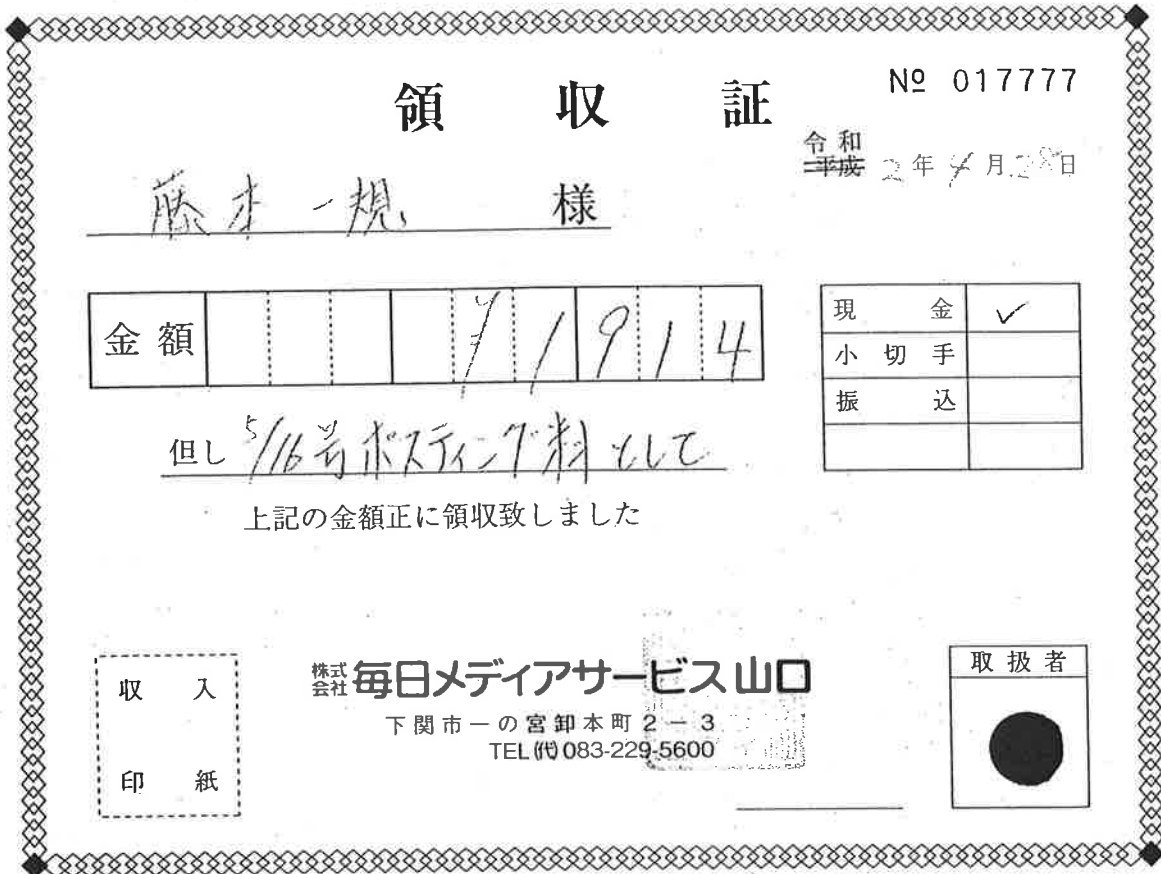 領収証
№ 017777
令和
平成 2年4月28日
藤本一規 様
金額 ¥1914
現金 ✓
小切手
振込
但し 5/16号ポスティング料として
上記の金額正に領収致しました
収入
印紙
株式会社 毎日メディアサービス山口
下関市一の宮卸本町2-3
TEL(代)083-229-5600
取扱者